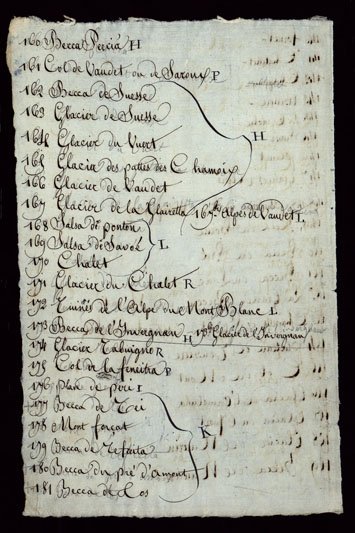 160 Becca Percia H
161 Col de Vaudet ou de Sazoux P
162 Becca de Suesse
163 Glacier de Suesse
H
164 Glacier du Vuert
165 Glacier des pattes des Chamoix
166 Glacier de Vaudet
167 Glacier de la Glairetta 167bis Alpes de Vaudet L
168 Salsa de ponton
169 Salsa de Savoi
L
170 Chalet
171 Glacier du Chalet R
172 Ruines de l'Alpe du Mont Blanc L
173 Becca de l'Invergnan H 173bis Glacier de l'Invergnan
174 Glacier Rabuigne R
175 Col de la fenêtra P
176 Plan de I
177 Becca de
178 Mont forçat
K
179 Becca de
180 Becca du pré d'amont
181 Becca de